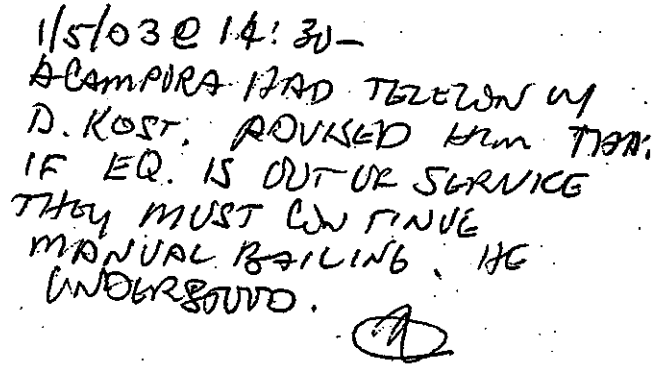 1/5/03 @ 14:30-
ACAMPORA HAD TELECON W/
D. KOST. ADVISED HIM THAT
IF EQ. IS OUT OF SERVICE
THEY MUST CONTINUE
MANUAL BAILING. HE
UNDERSTOOD.